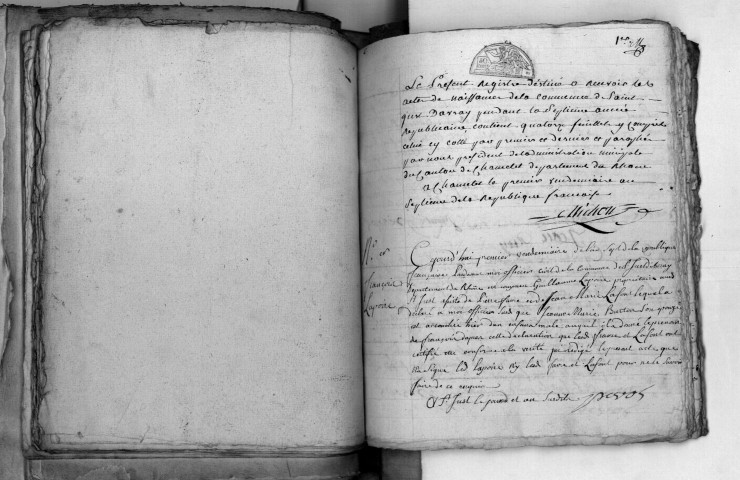 1er
Le Present Registre destiné a recevoir les
acte de naissance de la commune de Saint
just Davray pendant la Septieme année
Republicaine contient quatorze feuillets y compris
celui cy cotté par premier et dernier et paraphée
par nous président de l'administration municipale
du Canton de Chamelet departement du Rhone
a Chamelet le premier vendemiaire an
Septieme de la Republique francaise
Michon
N° 1er
francois
Lapoire
Cejourd'hui premier vendemiaire de l'an Sept de la republique
francaise pardevant moi officier civil de la Commune de St Just davray
departement du Rhone est comparu Guillaume Lapoire propriétaire
St Just assisté de Pierre favre et de Jean Marie Lafont lequel a
déclaré a moi officier susd que Jeanne Marie Burtin Son epouse
est accouchée hier d'un enfant male auquel il a donné le prenom
de francois dapres cette declaration que lesd favre et Lafont ont
certifié conforme a la verité j'ai redigé le present acte que
led Lapoire Ny lesd favre et Lafont pour ne le Savoir
faire de ce enquis
a St Just le jour et an Susdits